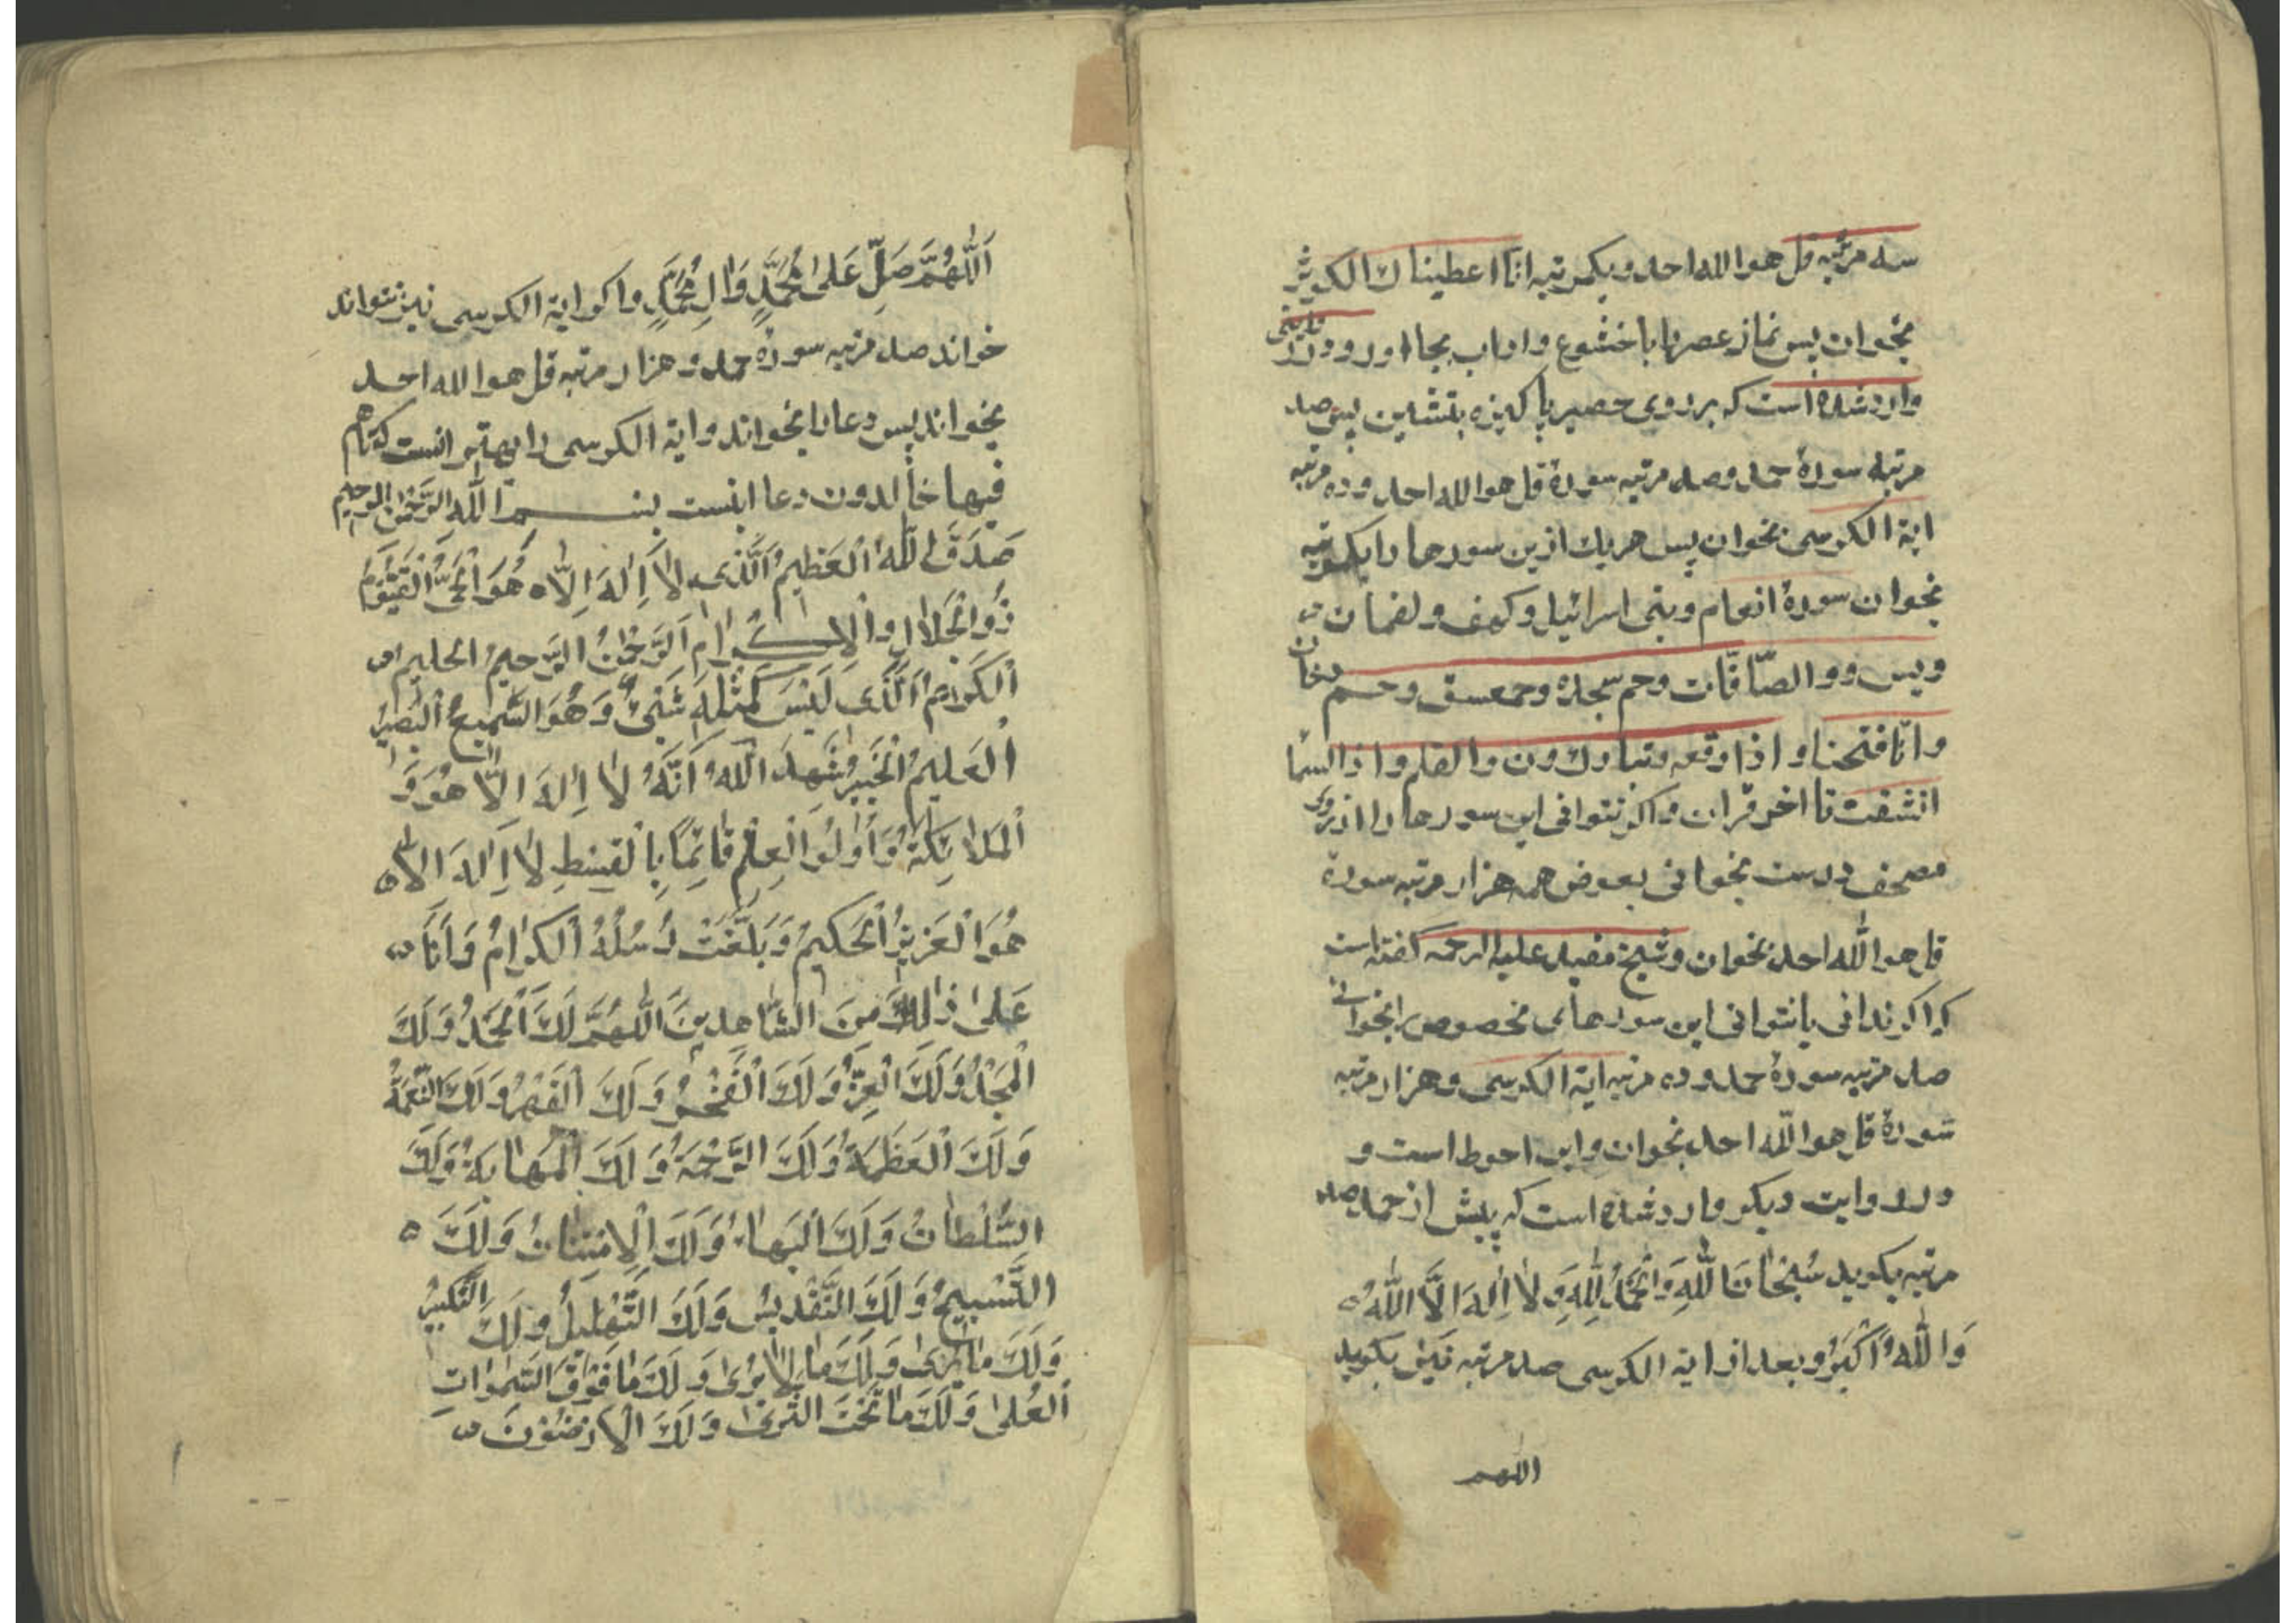 سه مرتبه قل هو الله احد و یکمرتبه انا اعطیناك الکوثر
بخوان پس نماز عصر را با خشوع و اداب بجا اور و در روایتی
وارد شده است که بر روی حصیر پاکیزه بنشین پس صد
مرتبه سورهٔ حمد و صد مرتبه سورهٔ قل هو الله احد و ده مرتبه
ایة الکرسی بخوان پس هر یك ازین سورها را یکمرتبه
بخوان سورهٔ انعام و بنی اسرائیل و کهف و لقمان
و یس و والصّافّات و حم سجده و حمعسق و حم دخان
و انّا فتحنا و اذا وقعه و تبارك و ن والقلم و اذا السما
انشقت تا اخر قران و اکر نتوانی این سورها را از روی
مصحف درست بخوانی بعوض همه هزار مرتبه سوره
قل هو اللّه احد بخوان و شیخ مفید علیه الرحمه کفته است
که اکر ندانی یا نتوانی این سورهای مخصوص را بخوانی
صد مرتبه سورهٔ حمد و ده مرتبه ایة الکرسی و هزار مرتبه
سورهٔ قل هو اللّه احد بخوان و این احوط است و
در روایت دیکر وارد شده است که پیش از حمد صد
مرتبه بکوید سُبْحٰانَ اللّٰهِ وَالْحَمْدُ لِلّٰهِ وَ لاٰ اِلٰهَ اِلَّا اللّٰهُ
وَاللّٰهُ اَکْبَرُ و بعد از ایة الکرسی صد مرتبه نیز بکوید
اللهم
اَللّٰهُمَّ صَلِّ عَلیٰ مُحَمَّدٍ وَ اٰلِ مُحَمَّدٍ و اکر ایة الکرسی نیز نتواند
خواند صد مرتبه سورهٔ حمد و هزار مرتبه قل هو الله احد
بخواند پس دعا را بخواند و ایة الکرسی را بهتر انست که تا هم
فیها خالدون دعا اینست بسم اللّٰه الرَّحْمٰنِ الرحیم
صَدَقَ اللّٰهُ الْعَظیمُ الَّذی لاٰ اِلٰهَ اِلّاٰ هُوَ الْحَیُّ الْقَیُّومُ
ذُو الْجَلاٰلِ وَالْاِکْرٰامِ اَلرَّحْمٰنُ الرَّحیمُ الحلیم
اَلْکَریمُ اَلَّذی لَیْسَ کَمِثْلِهِ شَیْءٌ وَ هُوَ السَّمیعُ الْبَصیرُ
اَلْعَلیمُ الْخَبیرُ شَهِدَ اللّٰهُ اَنَّهُ لاٰ اِلٰهَ اِلّاٰ هُوَ وَ
الْمَلاٰئِکَةُ وَ اُولُوا الْعِلْمِ قٰائِمًا بِالْقِسْطِ لاٰ اِلٰهَ اِلاّٰ
هُوَ الْعَزیزُ الْحَکیمُ وَ بَلَّغَتْ رُسُلُهُ الْکِرٰامُ وَ اَنَا
عَلیٰ ذٰلِكَ مِنَ الشّٰاهِدینَ اَللّٰهُمَّ لَكَ الْحَمْدُ وَ لَكَ
الْمَجْدُ وَ لَكَ الْعِزُّ وَ لَكَ الْفَخْرُ وَ لَكَ الْقَهْرُ وَ لَكَ النِّعْمَةُ
وَ لَكَ الْعَظَمَةُ وَ لَكَ الرَّحْمَةُ وَ لَكَ الْمَهٰابَةُ وَ لَكَ
السُّلْطٰانُ وَ لَكَ الْبَهٰاءُ وَ لَكَ الْاِمْتِنٰانُ وَ لَكَ
التَّسْبیحُ وَ لَكَ التَّقْدیسُ وَ لَكَ التَّهْلیلُ وَ لَكَ التَّکْبیرُ
وَ لَكَ مٰا یُریٰ وَ لَكَ مٰا لاٰ یُریٰ وَ لَكَ مٰا فَوْقَ السَّمٰوٰاتِ
الْعُلیٰ وَ لَكَ مٰا تَحْتَ الثَّریٰ وَ لَكَ الْاَرَضُونَ